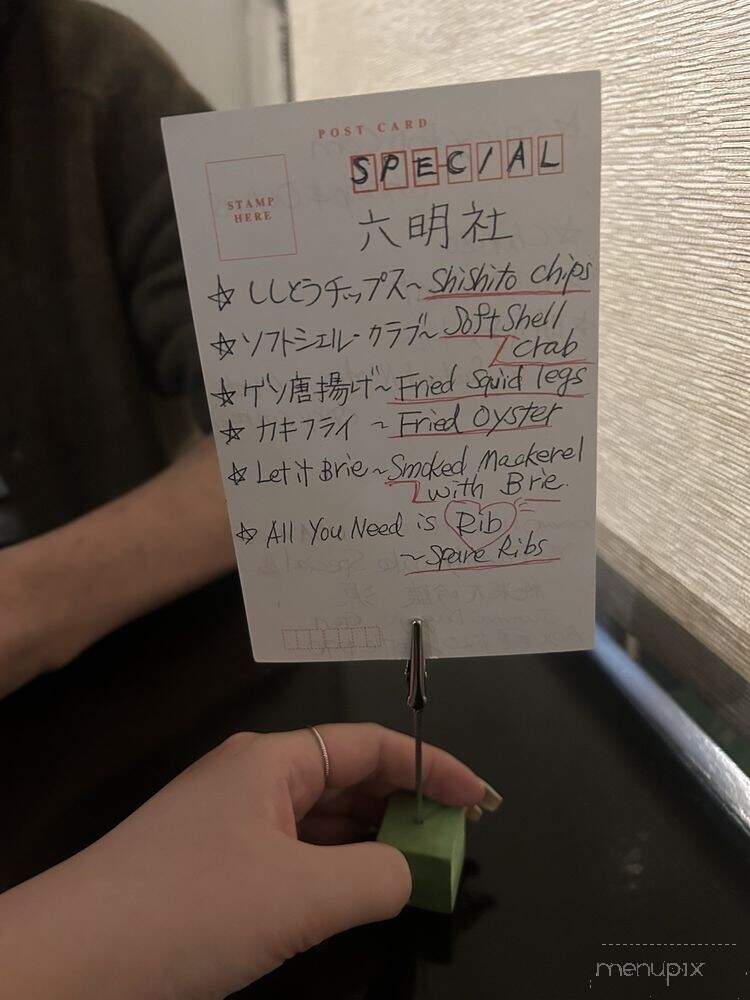 POST CARD
STAMP
HERE
SPECIAL
六明社
☆ ししとうチップス~ Shishito chips
☆ ソフトシェル・クラブ~ Soft Shell
crab
☆ ゲソ唐揚げ~ Fried Squid legs
☆ カキフライ ~ Fried Oyster
☆ Let it Brie ~ Smoked Mackerel
with Brie.
☆ All You Need is Rib
~ Spare Ribs
menupix